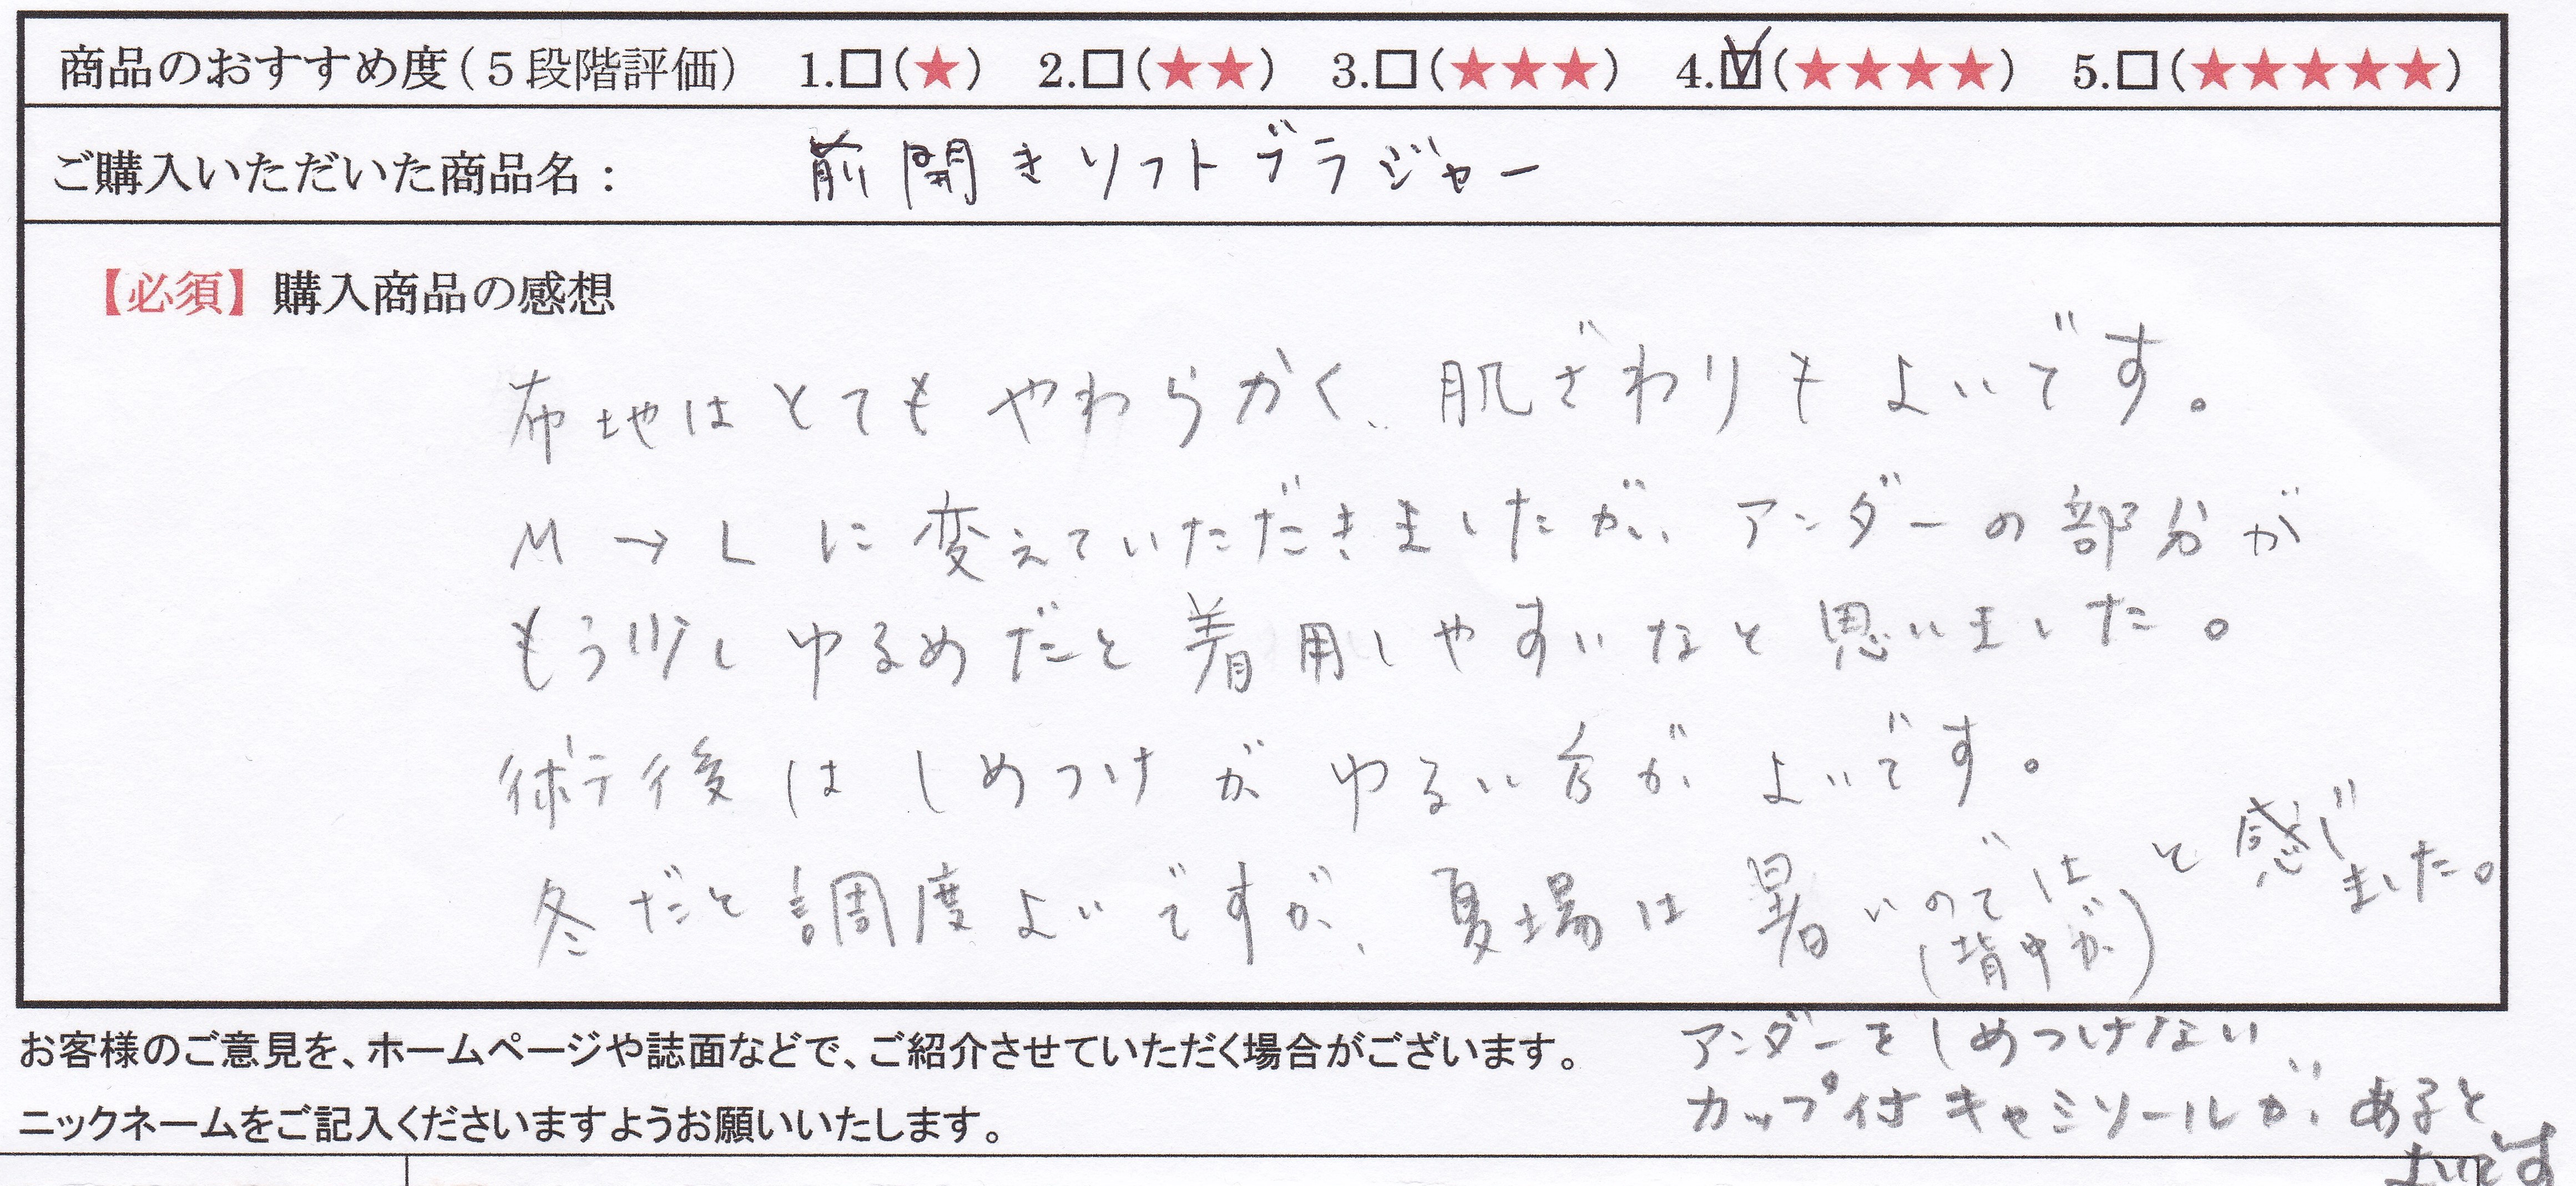 商品のおすすめ度(5段階評価) 1.□(★) 2.□(★★) 3.□(★★★) 4.☑(★★★★) 5.□(★★★★★)
ご購入いただいた商品名: 前開きソフトブラジャー
【必須】購入商品の感想
布地はとてもやわらかく、肌ざわりもよいです。
M→Lに変えていただきましたが、アンダーの部分が
もう少しゆるめだと着用しやすいなと思いました。
術後はしめつけがゆるい方がよいです。
冬だと調度よいですが、夏場は暑いのでは(背中が)と感じました。
お客様のご意見を、ホームページや誌面などで、ご紹介させていただく場合がございます。
ニックネームをご記入くださいますようお願いいたします。
アンダーをしめつけない
カップ付キャミソールが、あると
よいです